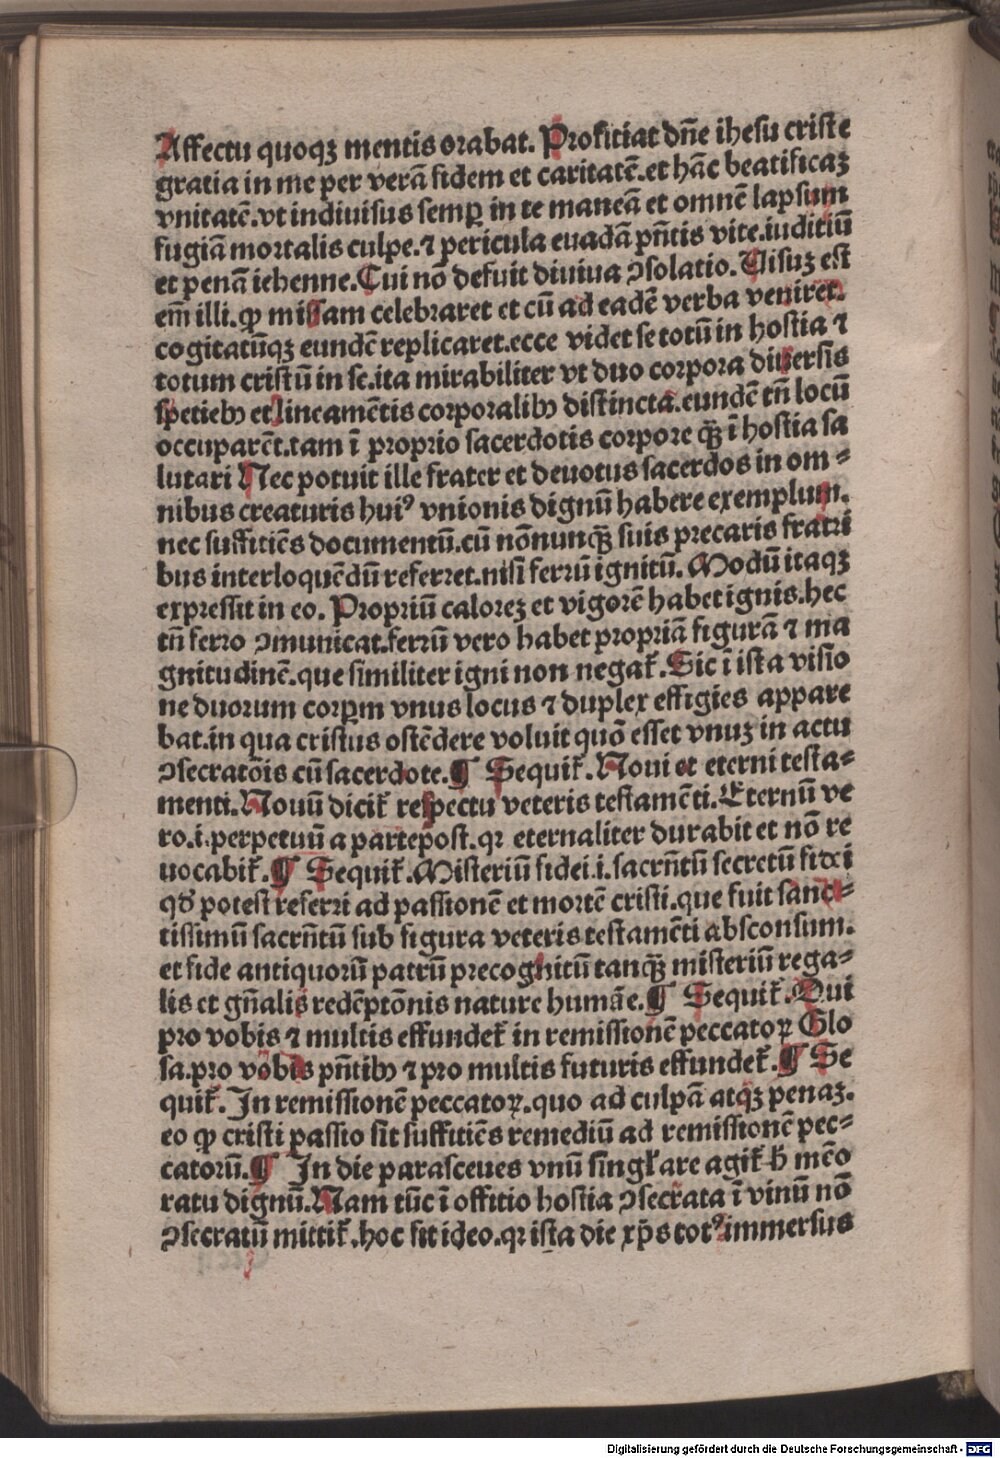 Affectu quoqꝫ mentis orabat. Profitiat dn̄e ihesu criste
gratia in me per verā fidem et caritatē.et hāc beatificaꝫ
vnitatē.vt indiuisus semꝑ in te maneā et omnē lapsum
fugiā mortalis culpe.⁊ pericula euadā pn̄tis vite.iuditiū
et penā iehenne.Cui nō defuit diuiua ↄsolatio.Uisuꝫ est
em̄ illi.ꝙ missam celebraret et cū ad eadē verba veniret.
cogitatūqꝫ eundē replicaret.ecce videt se totū in hostia ⁊
totum cristū in se.ita mirabiliter vt duo corpora diuersis
spetiebꝰ et lineamētis corporalibꝰ distincta.eundē tn̄ locū
occuparēt.tam ī proprio sacerdotis corpore qꝫ̄ ī hostia sa
lutari Nec potuit ille frater et deuotus sacerdos in om⸗
nibus creaturis huiꝰ vnionis dignū habere exemplum.
nec suffitiēs documentū.cū nōnunqꝫ̄ suis precaris fratri
bus interloquēdū referret.nisi ferrū ignitū. Modū itaqꝫ
expressit in eo. Propriū caloreꝫ et vigorē habet ignis.hec
tn̄ ferro ↄmunicat.ferrū vero habet propriā figurā ⁊ ma
gnitudinē.que similiter igni non negat᷑.Sic ī ista visio
ne duorum corꝑm vnus locus ⁊ duplex effigies appare
bat.in qua cristus ostēdere voluit quō esset vnuꝫ in actu
ↄsecratōis cū sacerdote.¶ Sequit᷑. Noui et eterni testa⸗
menti.Nouū dicit᷑ respectu veteris testamēti.Eternū ve
ro.i.perpetuū a parte post.qꝛ eternaliter durabit et nō re
uocabit᷑.¶ Sequit᷑.Misteriū fidei.i.sacrn̄tū secretū fidei
qd᷑ potest referri ad passionē et mortē cristi.que fuit sanc⸗
tissimū sacrn̄tū sub figura veteris testamēti absconsum.
et fide antiquorū patrū precognitū tanqꝫ̄ misteriū rega⸗
lis et gn̄alis redēptōnis nature humāe.¶ Sequit᷑.Qui
pro vobis ⁊ multis effundet᷑ in remissionē peccatoꝝ Glo
sa.pro vobis pn̄tibꝰ ⁊ pro multis futuris effundet᷑.¶ Se
quit᷑.In remissionē peccatoꝝ.quo ad culpā atqꝫ penaꝫ.
eo ꝙ cristi passio sit suffitiēs remediū ad remissionē pec⸗
catorū.¶ In die parasceues vnū singl᷑are agit᷑ ħ mēo
ratu dignū.Nam tūc ī offitio hostia ↄsecrata ī vinū nō
ↄsecratū mittit᷑.hoc fit ideo.qꝛ ista die xp̄s totꝰ immersus
Digitalisierung gefördert durch die Deutsche Forschungsgemeinschaft - DFG